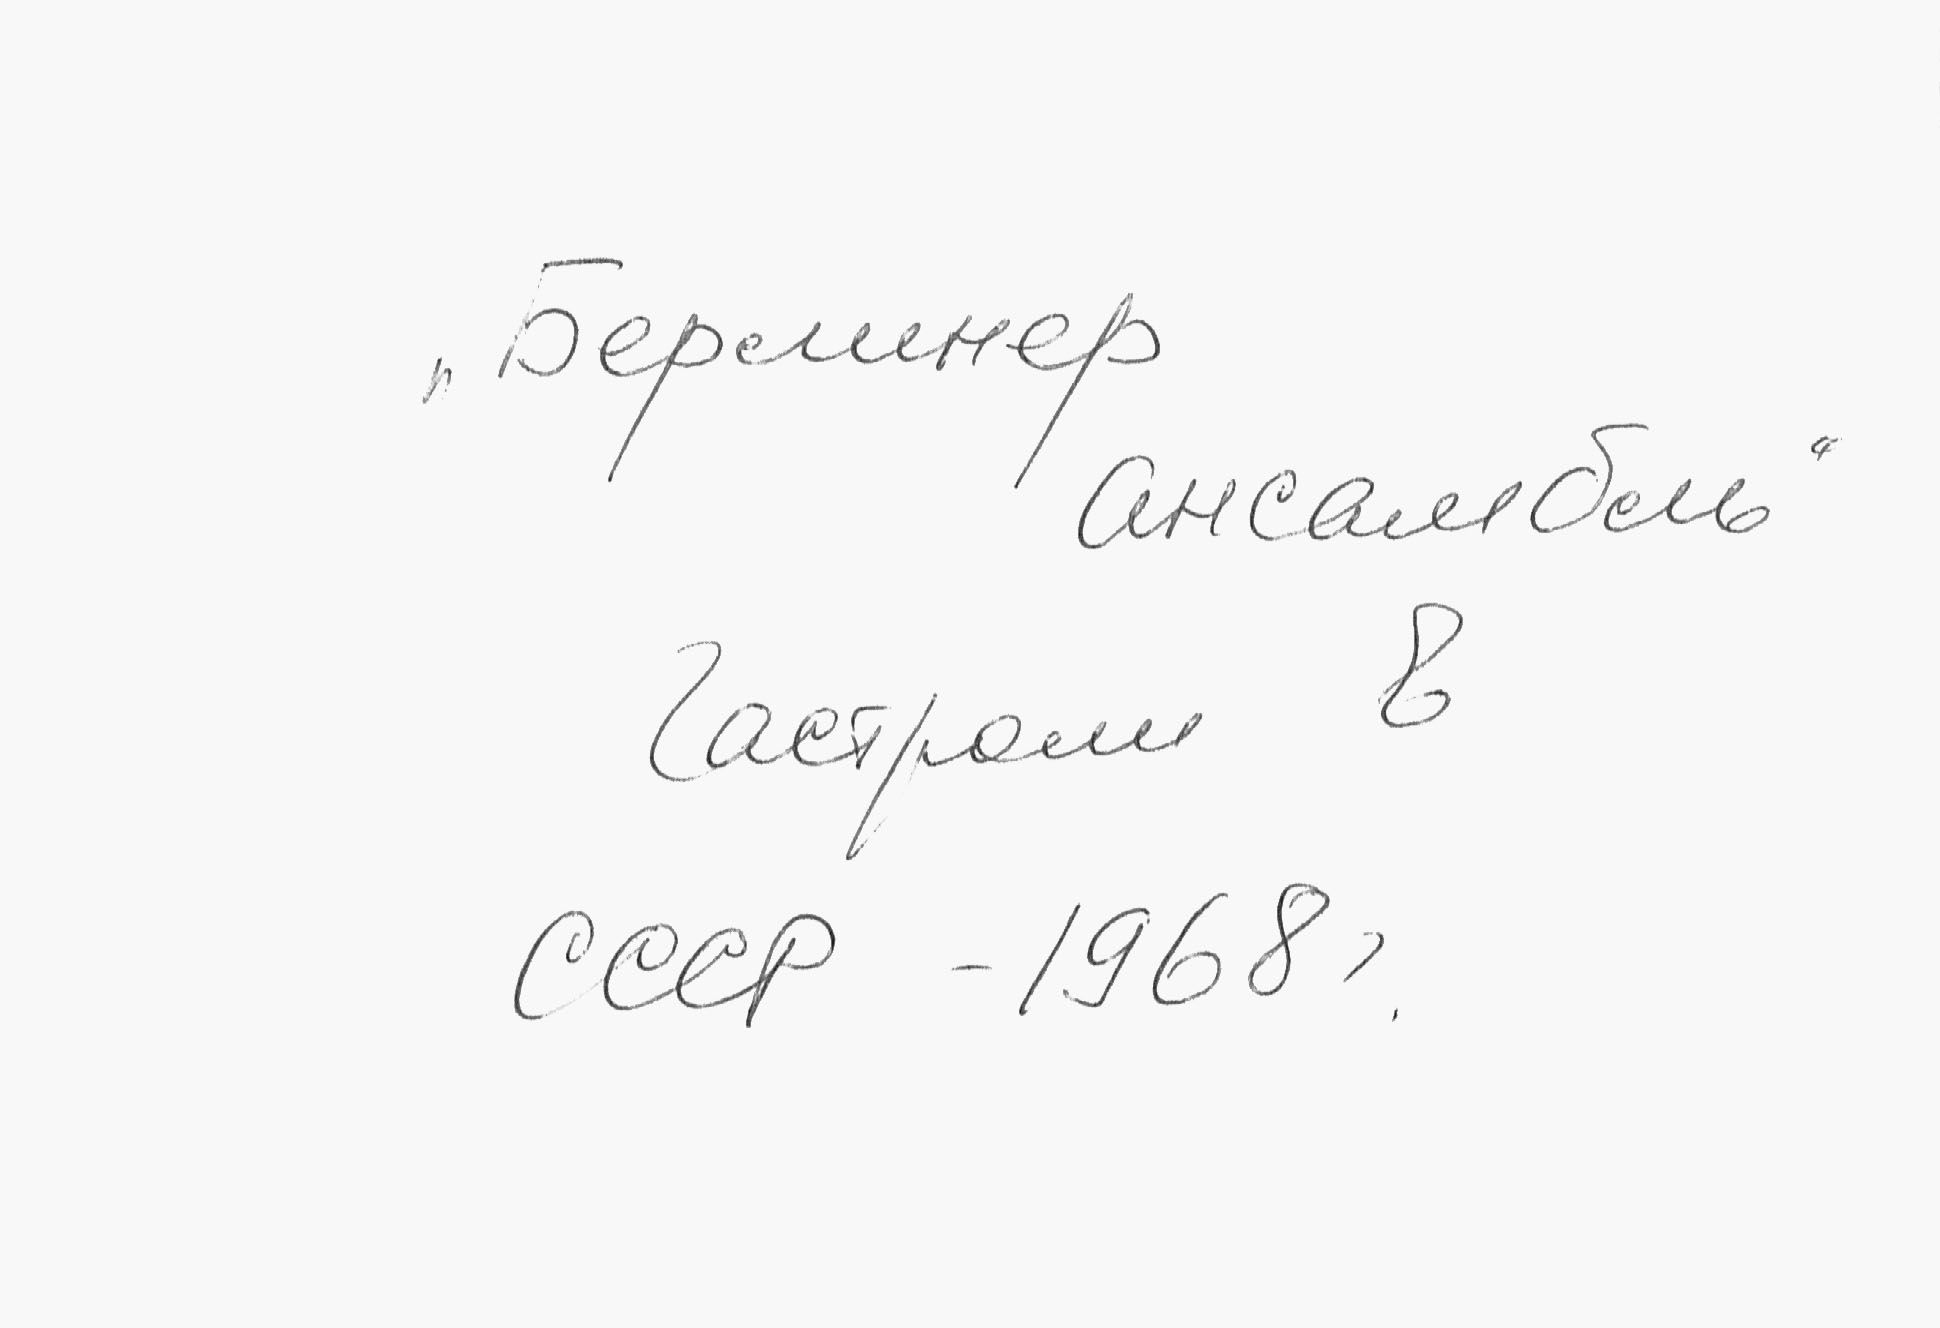 „Берлинер
ансамбль“
Гастроли в
СССР - 1968 г.